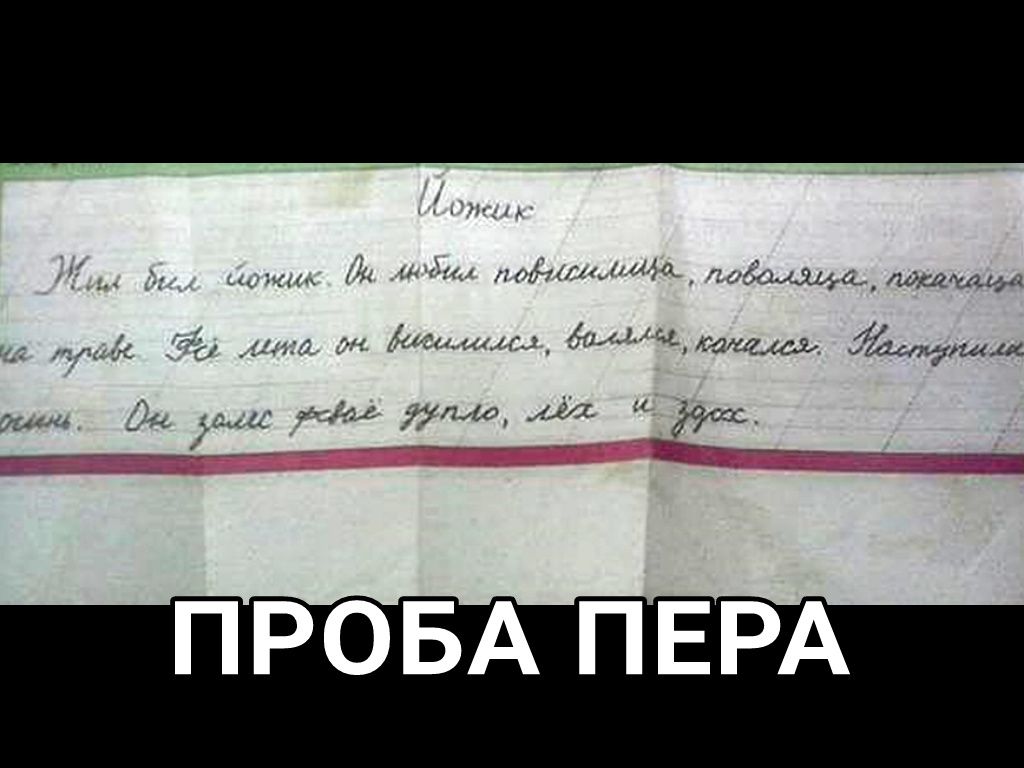 Йожик
Жил был йожик. Он любил повисилица, поваляца, покачаца
на траве. Фсё лета он висилился, валялся, качался. Наступила
осинь. Он залес фсваё дупло, лёх и здох.
ПРОБА ПЕРА